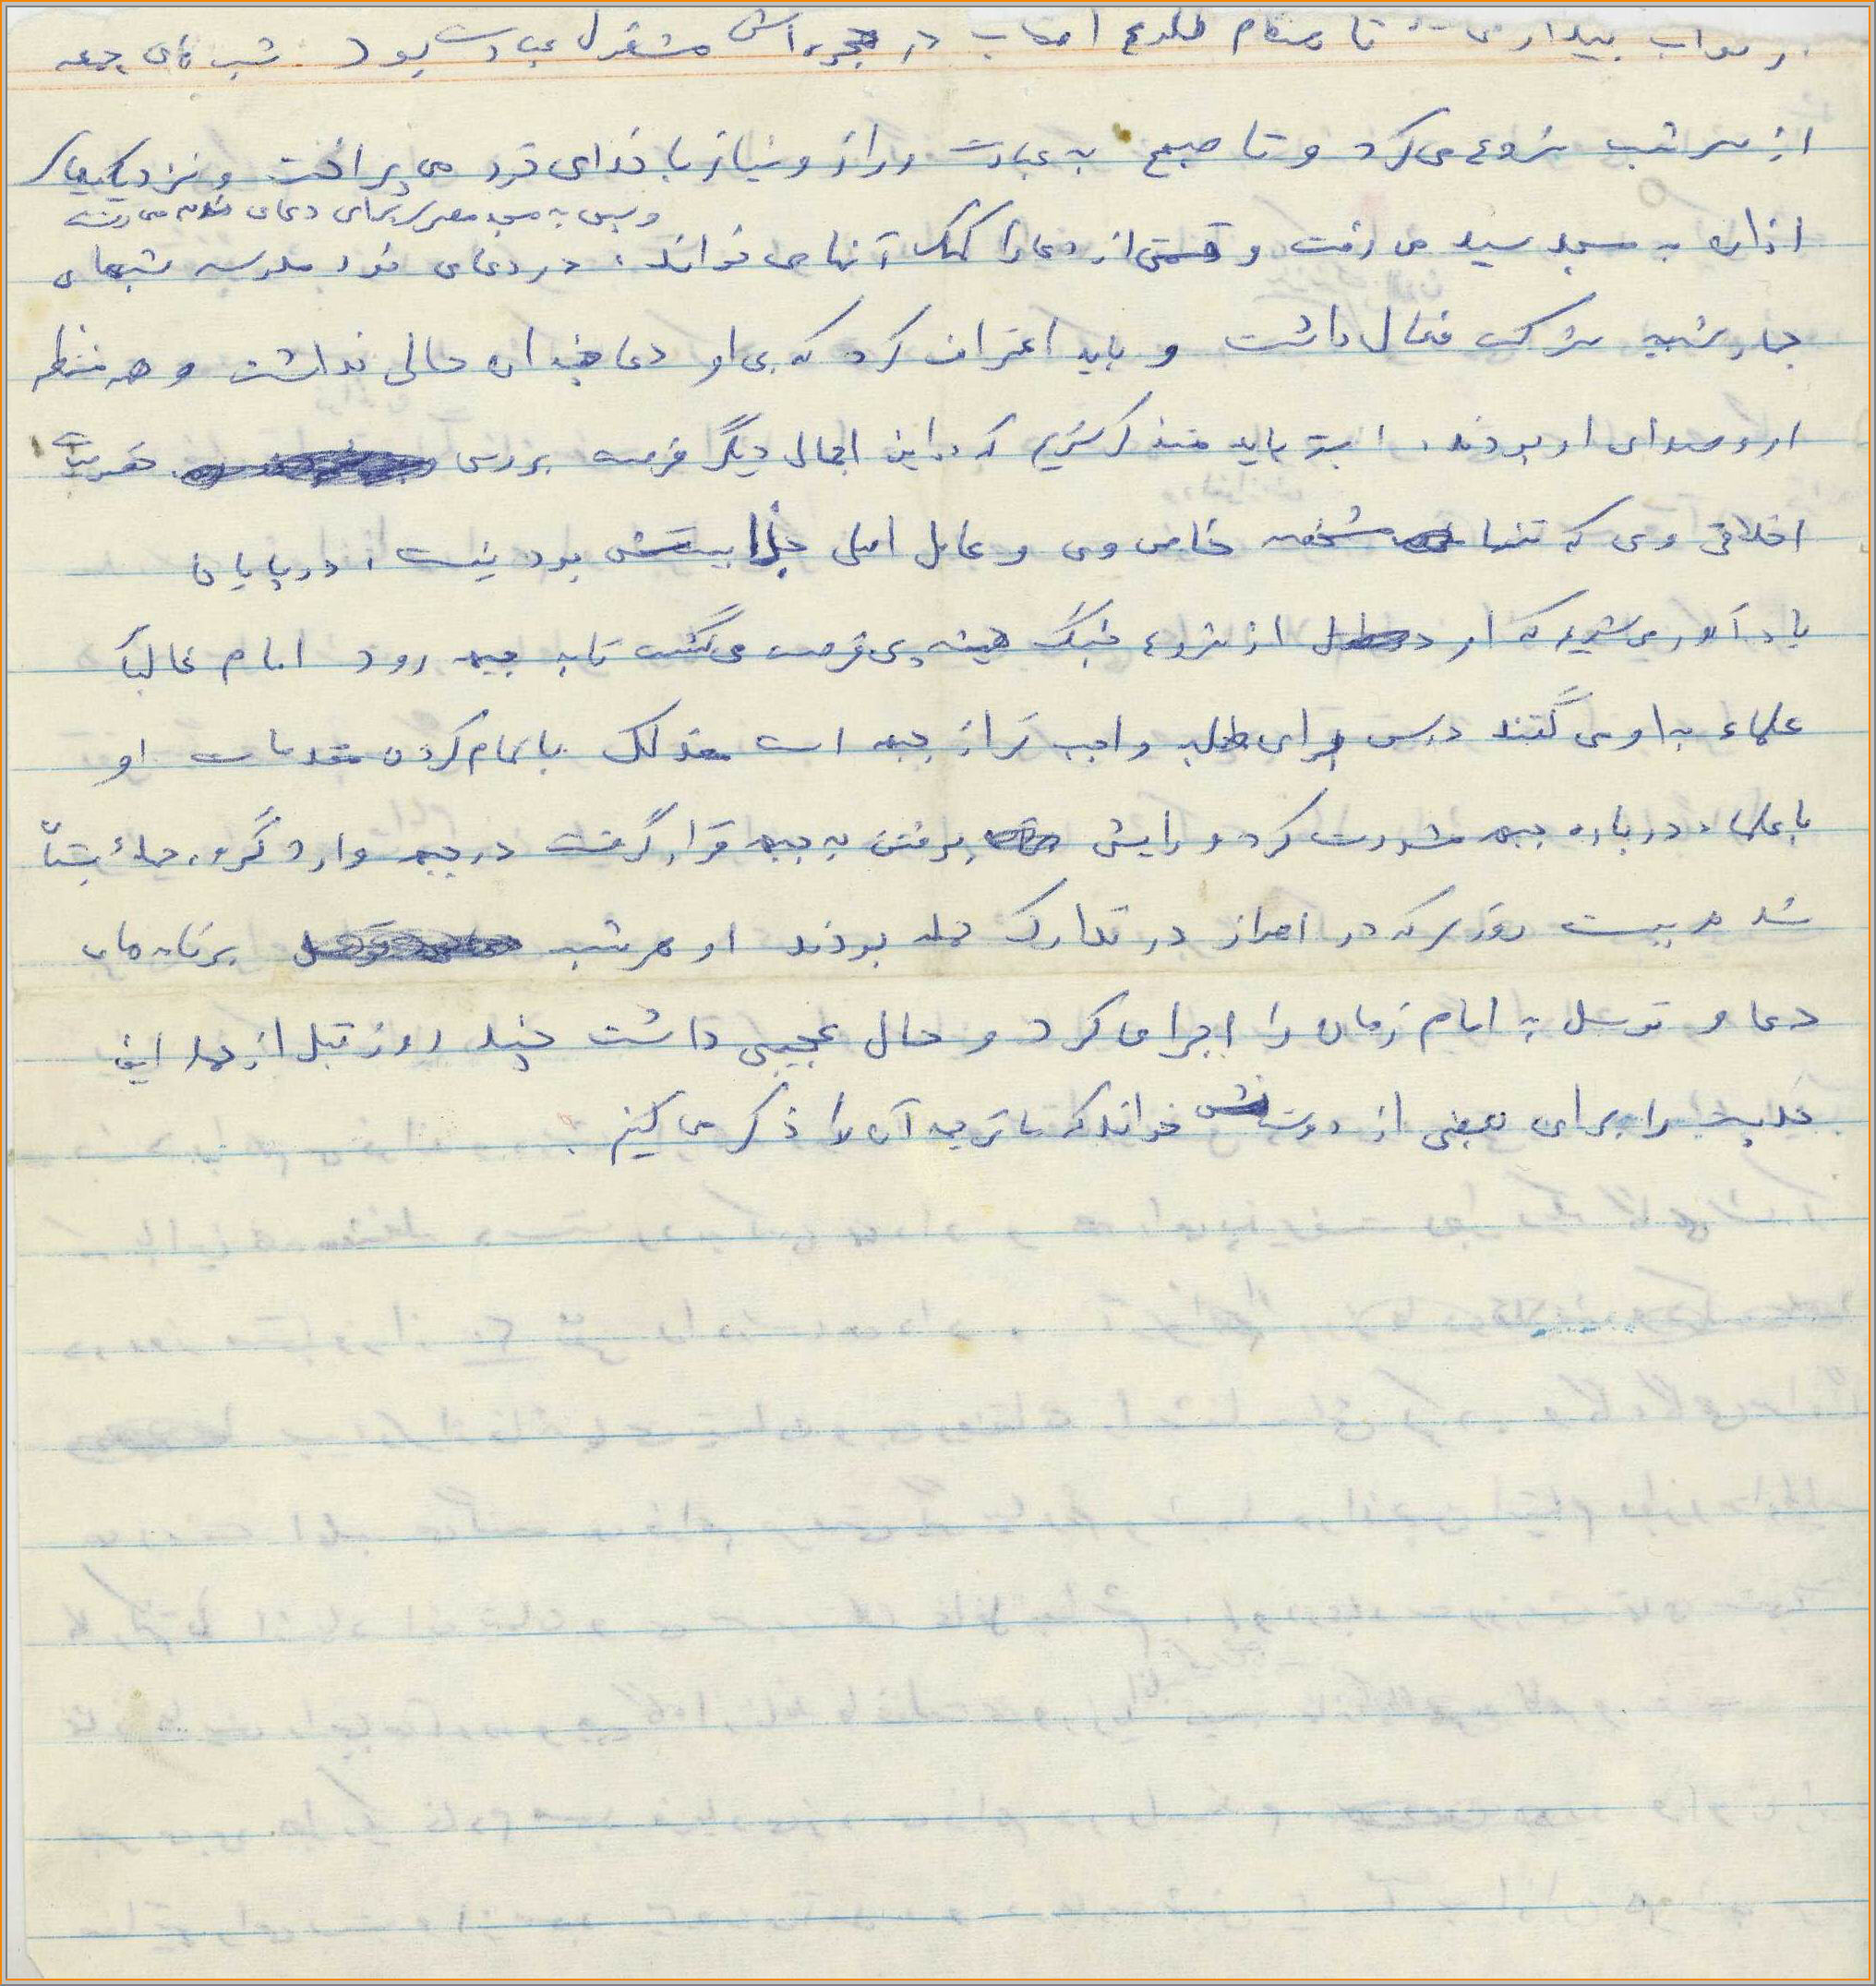 از خواب بیدار می‌شد تا هنگام طلوع آفتاب در حجره‌اش مشغول عبادت بود. شب های جمعه
از سر شب شروع می‌کرد و تا صبح به عبادت و راز و نیاز با خدای خود می پرداخت و نزدیکیهای
و سپس به مسجد برای دعای ندبه می رفت
اذان به مسجد سید می رفت و قسمتی از دعا را کمک آنها می خواند، در دعای خود مدرسه شبهای
چهارشنبه شرکت فعال داشت و باید اعتراف کرد که بی او دعا چندان حالی نداشت و همه منتظر
او و صدای او بودند. البته باید متذکر شویم که در این اجمال دیگر فرصت بررسی خصوصیات
اخلاقی وی که تنها مشخصه خاص وی و عامل اصلی جذابیتش بود نیست، در پایان
یاد آور می‌شویم که او از شروع جنگ همیشه پی فرصت می‌گشت تا به جبهه رود امام غالباً
علماء به او می گفتند درس برای طلبه واجب تر از جبهه است معذلک با تمام کردن مقدمات او
با علماء درباره جبهه مشورت کرد و رایش برفتن به جبهه قرار گرفت در جبهه وارد گروه حمله
شد در بیست روزی که در اهواز در تدارک حمله بودند او هر شب برنامه های
دعا و توسل به امام زمان را اجرا می کرد و حال عجیبی داشت چند روز قبل از حمله این
حدیث را برای بعضی از دوستانش خواند که ما ترجمه آن را ذکر می کنیم.